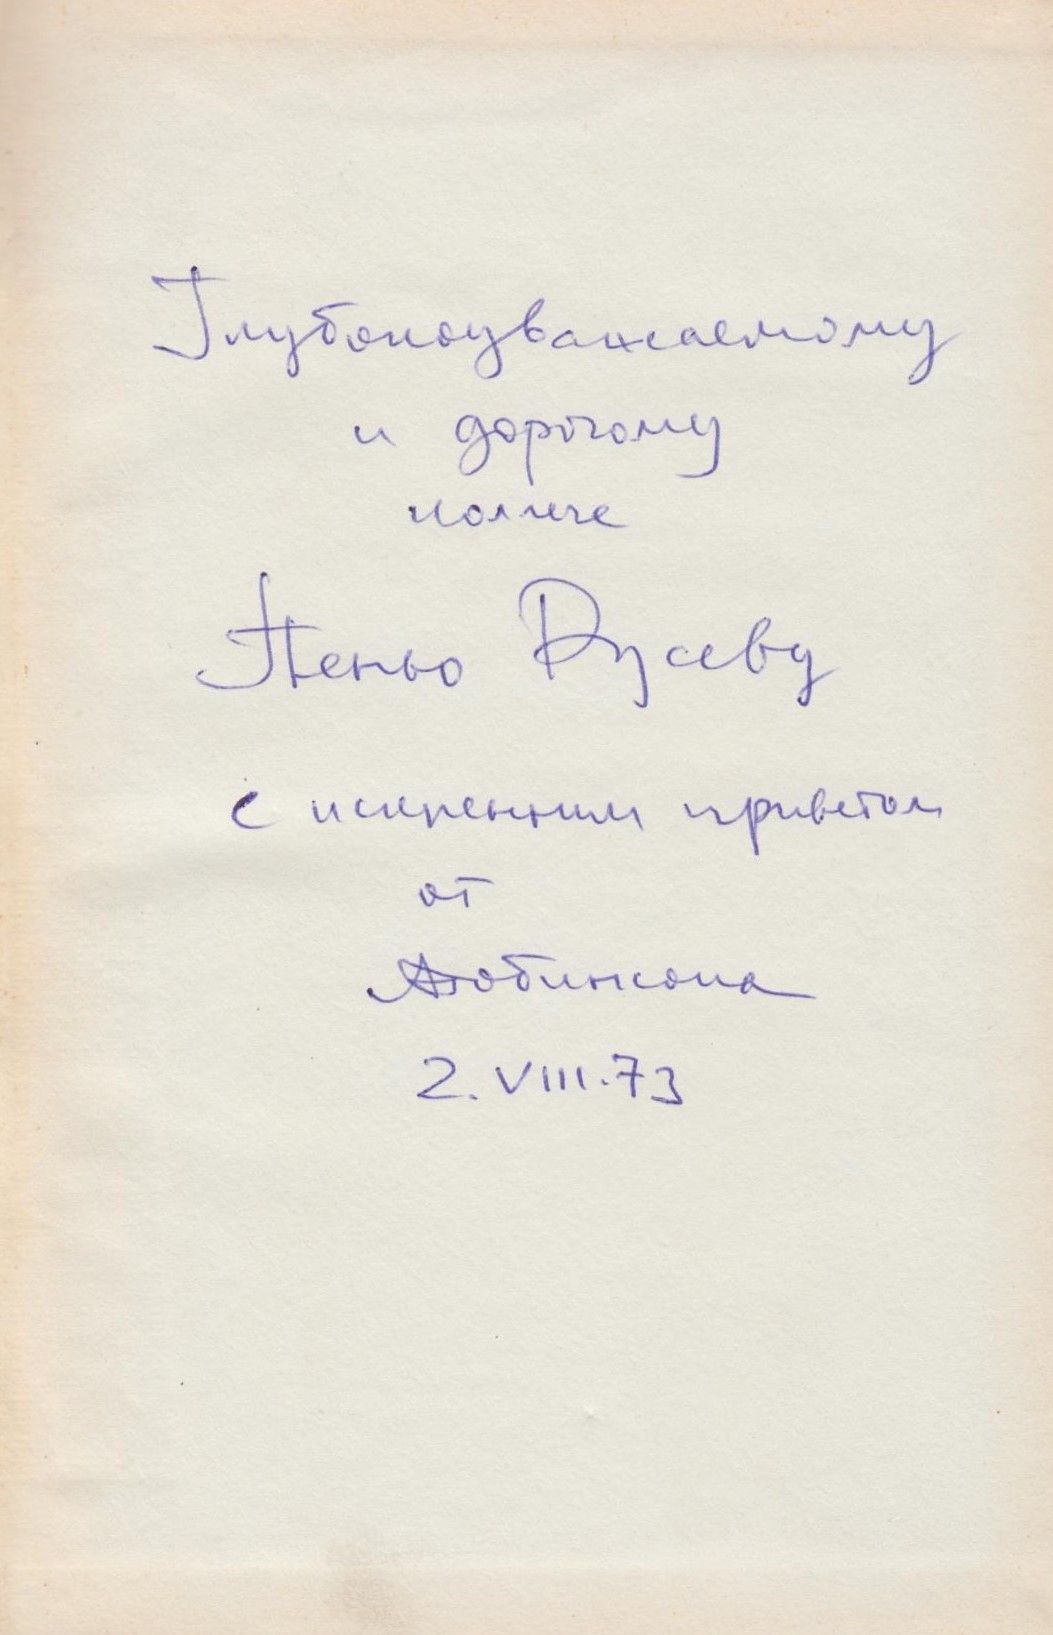 Глубокоуважаемому
и дорогому
коллеге
Пеньо Русеву
с искренним приветом
от
2.VIII.73